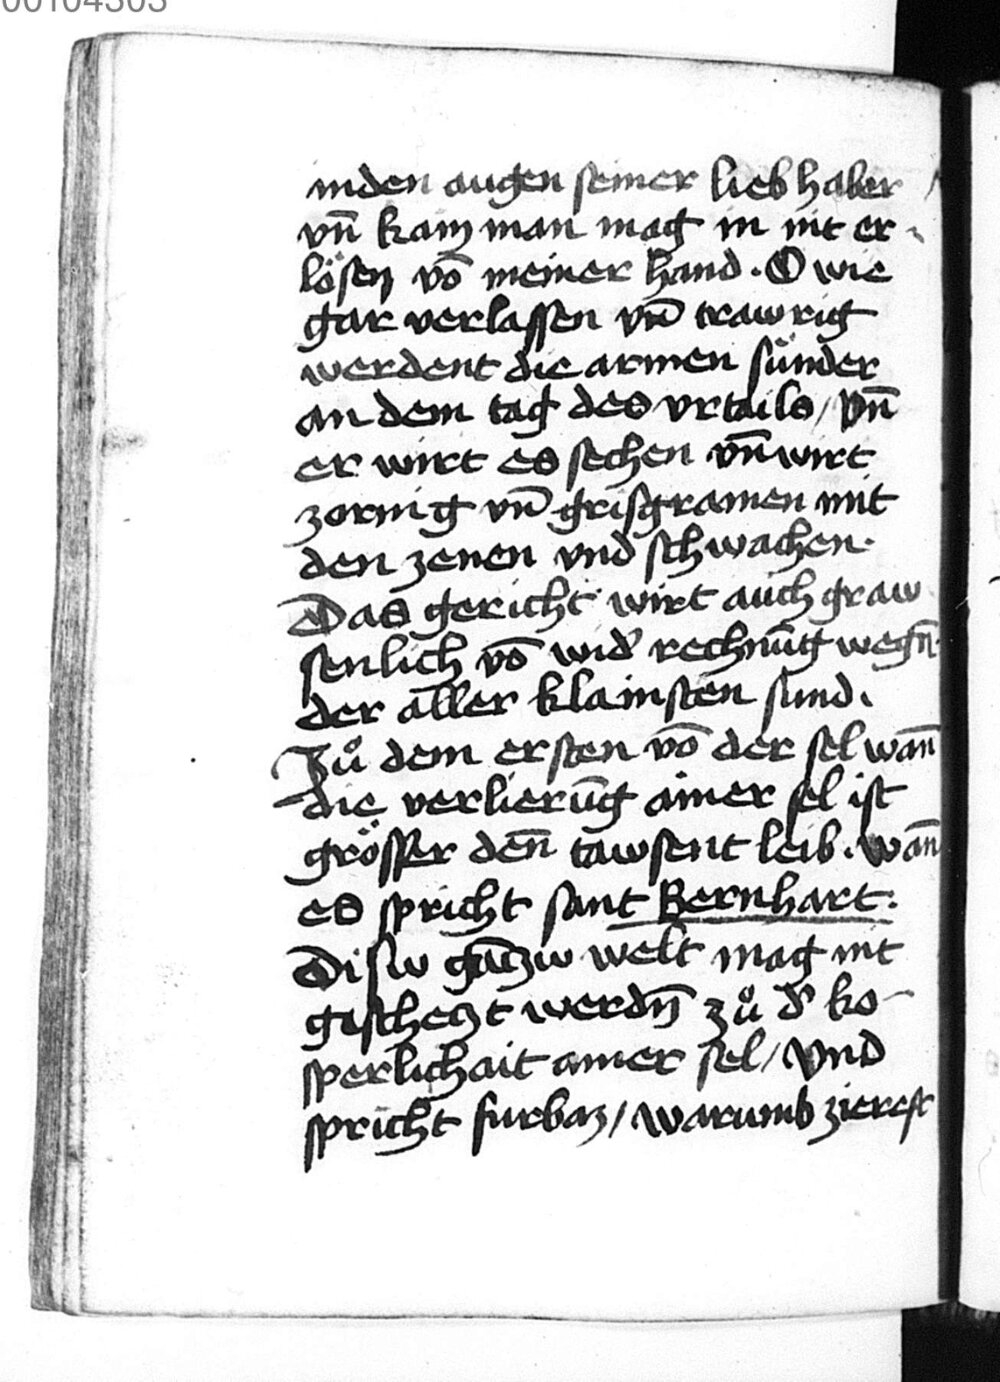 00104303
inden augen seiner liebhaber
vn̄ kain man mag in nit er
lösen vō meiner hand. O wie
gar verlassen vn̄ trawrig
werdent die armen sünder
an dem tag des vrtails / vn̄
er wirt es sechen vn̄ wirt
zornig vn̄ grisgramen mit
den zenen vnd schwachen.
Das gericht wirt auch graw
senlich vō wid' rechnūg wegn̄
der aller klainsten sund.
Zů dem ersten vō der sel wan̄
die verlierūg ainer sel ist
grösser den̄ tawsent leib. wan̄
es spricht sant Bernhart.
Disiv gācziv welt mag nit
gescheczt werdn̄ zů d' ko-
sperlichait ainer sel / vnd
spricht furbaz / warumb zierest